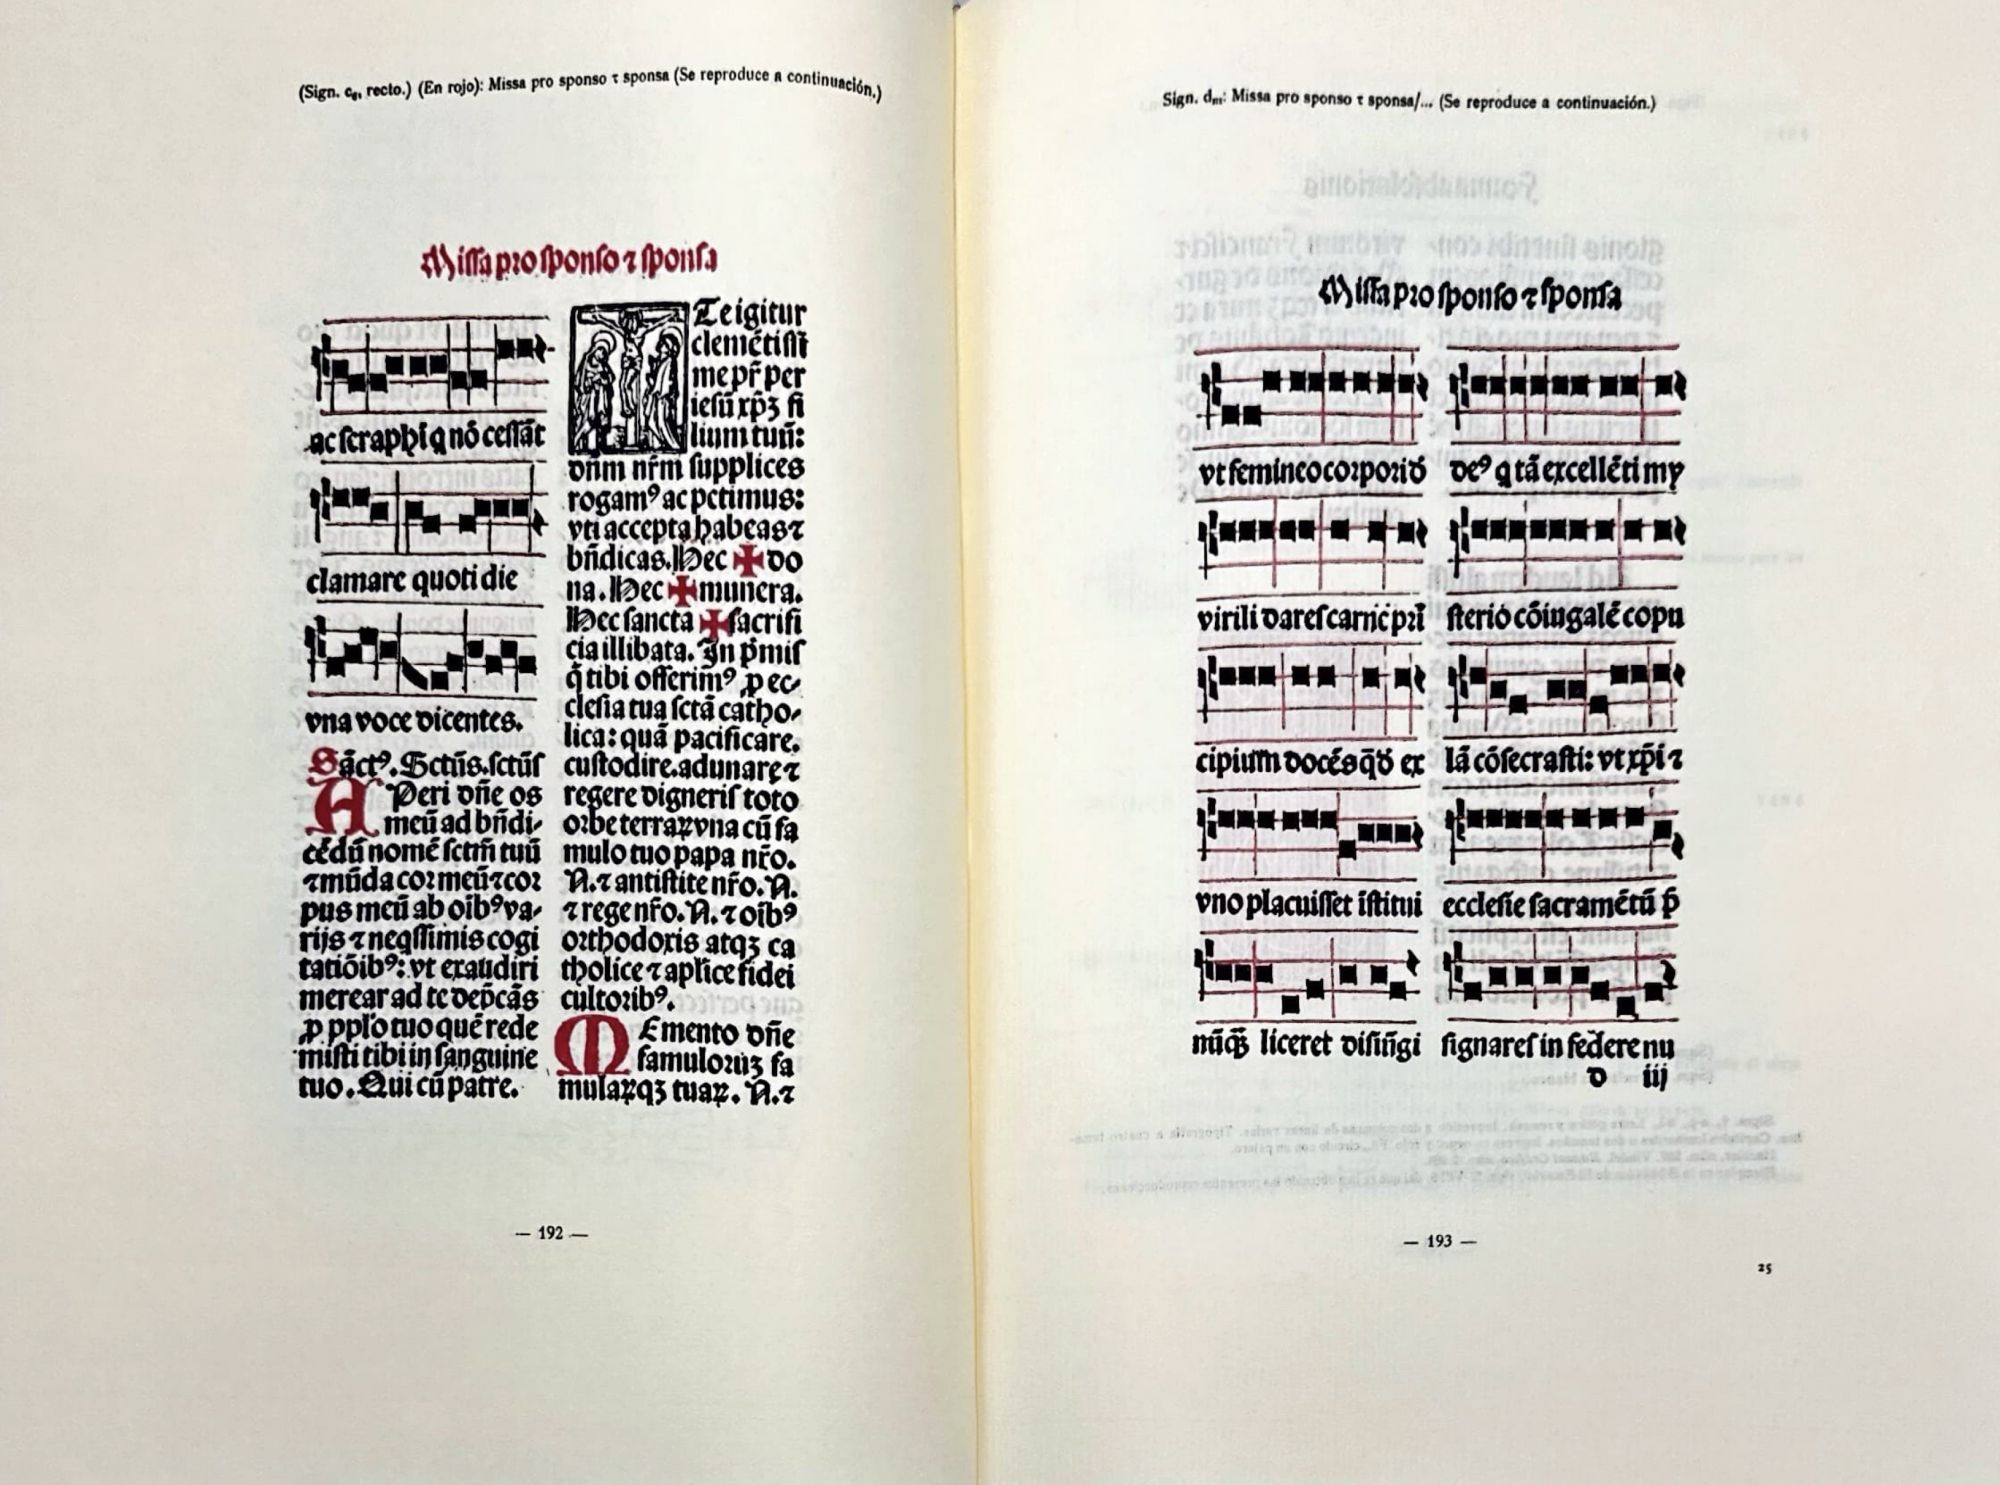 (Sign. c₆, recto.) (En rojo): Missa pro sponso ⁊ sponsa (Se reproduce a continuación.)
Missa pro sponso ⁊ sponsa
ac seraphī q nō cessāt
clamare quoti die
vna voce dicentes.
Sāctꝰ. Sctūs. sctūs
APeri dn̄e os
meū ad bn̄di-
cēdū nomē sctm̄ tuū
⁊ mūda cor meū ⁊ cor
pus meū ab oibꝰ va-
rijs ⁊ neqssimis cogi
tatiōibꝰ: vt exaudiri
merear ad te dep̄cās
ꝓ pplo tuo quē rede
misti tibi in sanguine
tuo. Qui cū patre.
Te igitur
clemētissi
me pr̄ per
iesū xp̄ꝫ fi
lium tuū:
dn̄m nr̄m supplices
rogamꝰ ac petimus:
vti accepta habeas ⁊
bn̄dicas. Hec ✠ do
na. Hec ✠ munera.
Hec sancta ✠ sacrifi
cia illibata. In p̄mis
q̄ tibi offerimꝰ ꝓ ec-
clesia tua sctā catho-
lica: quā pacificare.
custodire. adunare ⁊
regere digneris toto
orbe terraꝝ vna cū fa
mulo tuo papa nr̄o.
N. ⁊ antistite nr̄o. N.
⁊ rege nr̄o. N. ⁊ oībꝰ
orthodoxis atqꝫ ca
tholice ⁊ aplice fidei
cultoribꝰ.
MEmento dn̄e
famuloruꝫ fa
mulaꝝqꝫ tuaꝝ. N. ⁊
— 192 —
Sign. dₘ: Missa pro sponso ⁊ sponsa/... (Se reproduce a continuación.)
Missa pro sponso ⁊ sponsa
vt femineo corpori ð
virili dares carne pri
cipium docēs qð ex
vno placuisset īstitui
nūqꝫ liceret disiūgi
deꝰ q tā excellēti my
sterio cōiugalē copu
lā cōsecrasti: vt xp̄i ⁊
ecclesie sacramētū p̄
signares in federe nu
d iij
— 193 —
25